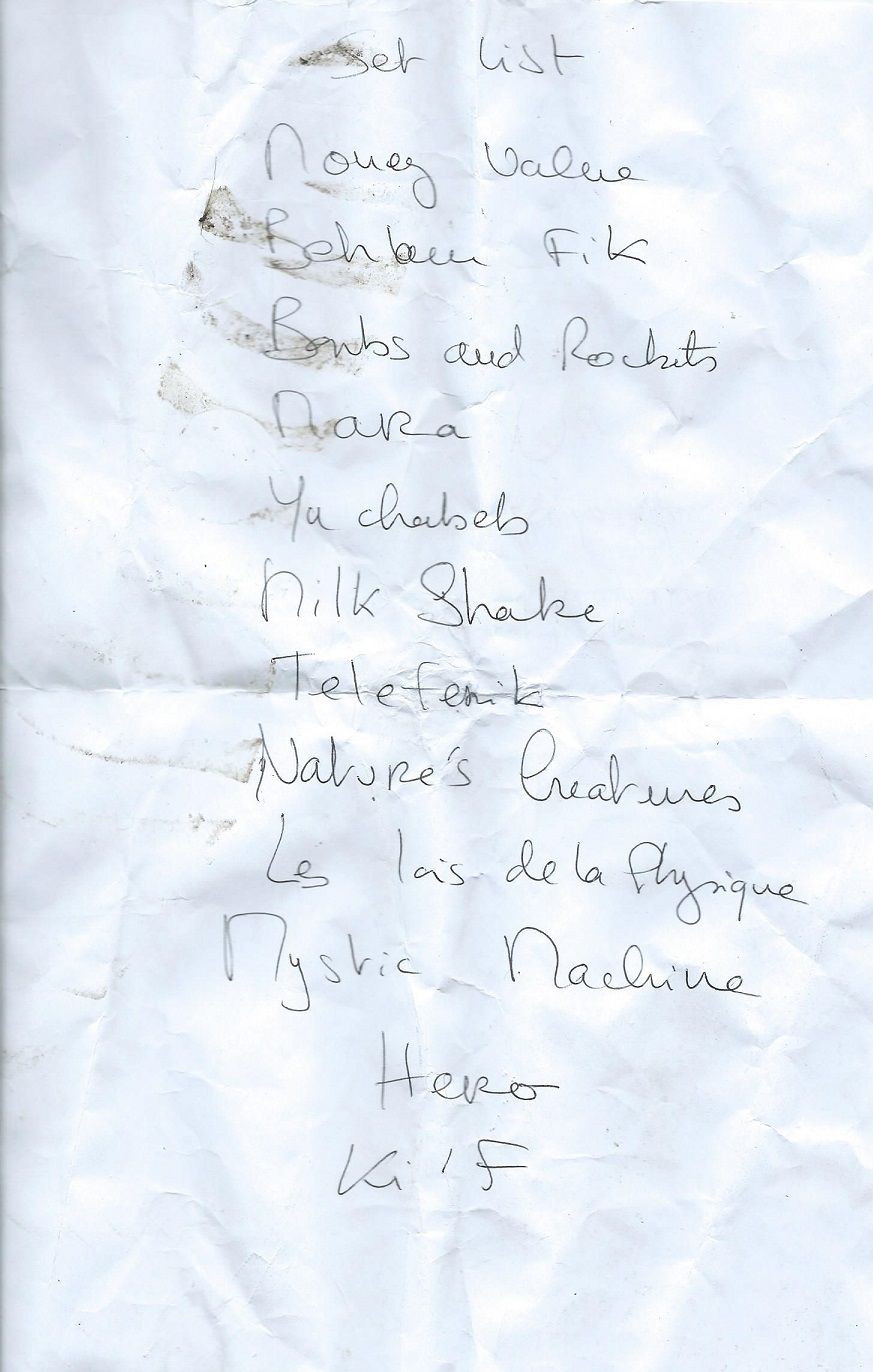 Set List
Money Value
Behlam Fik
Bombs and Rockets
Mara
Ya chabeb
Milk Shake
Telefenik
Nature's Creatures
Les lois de la Physique
Mystic Machine
Hero
Ki'F